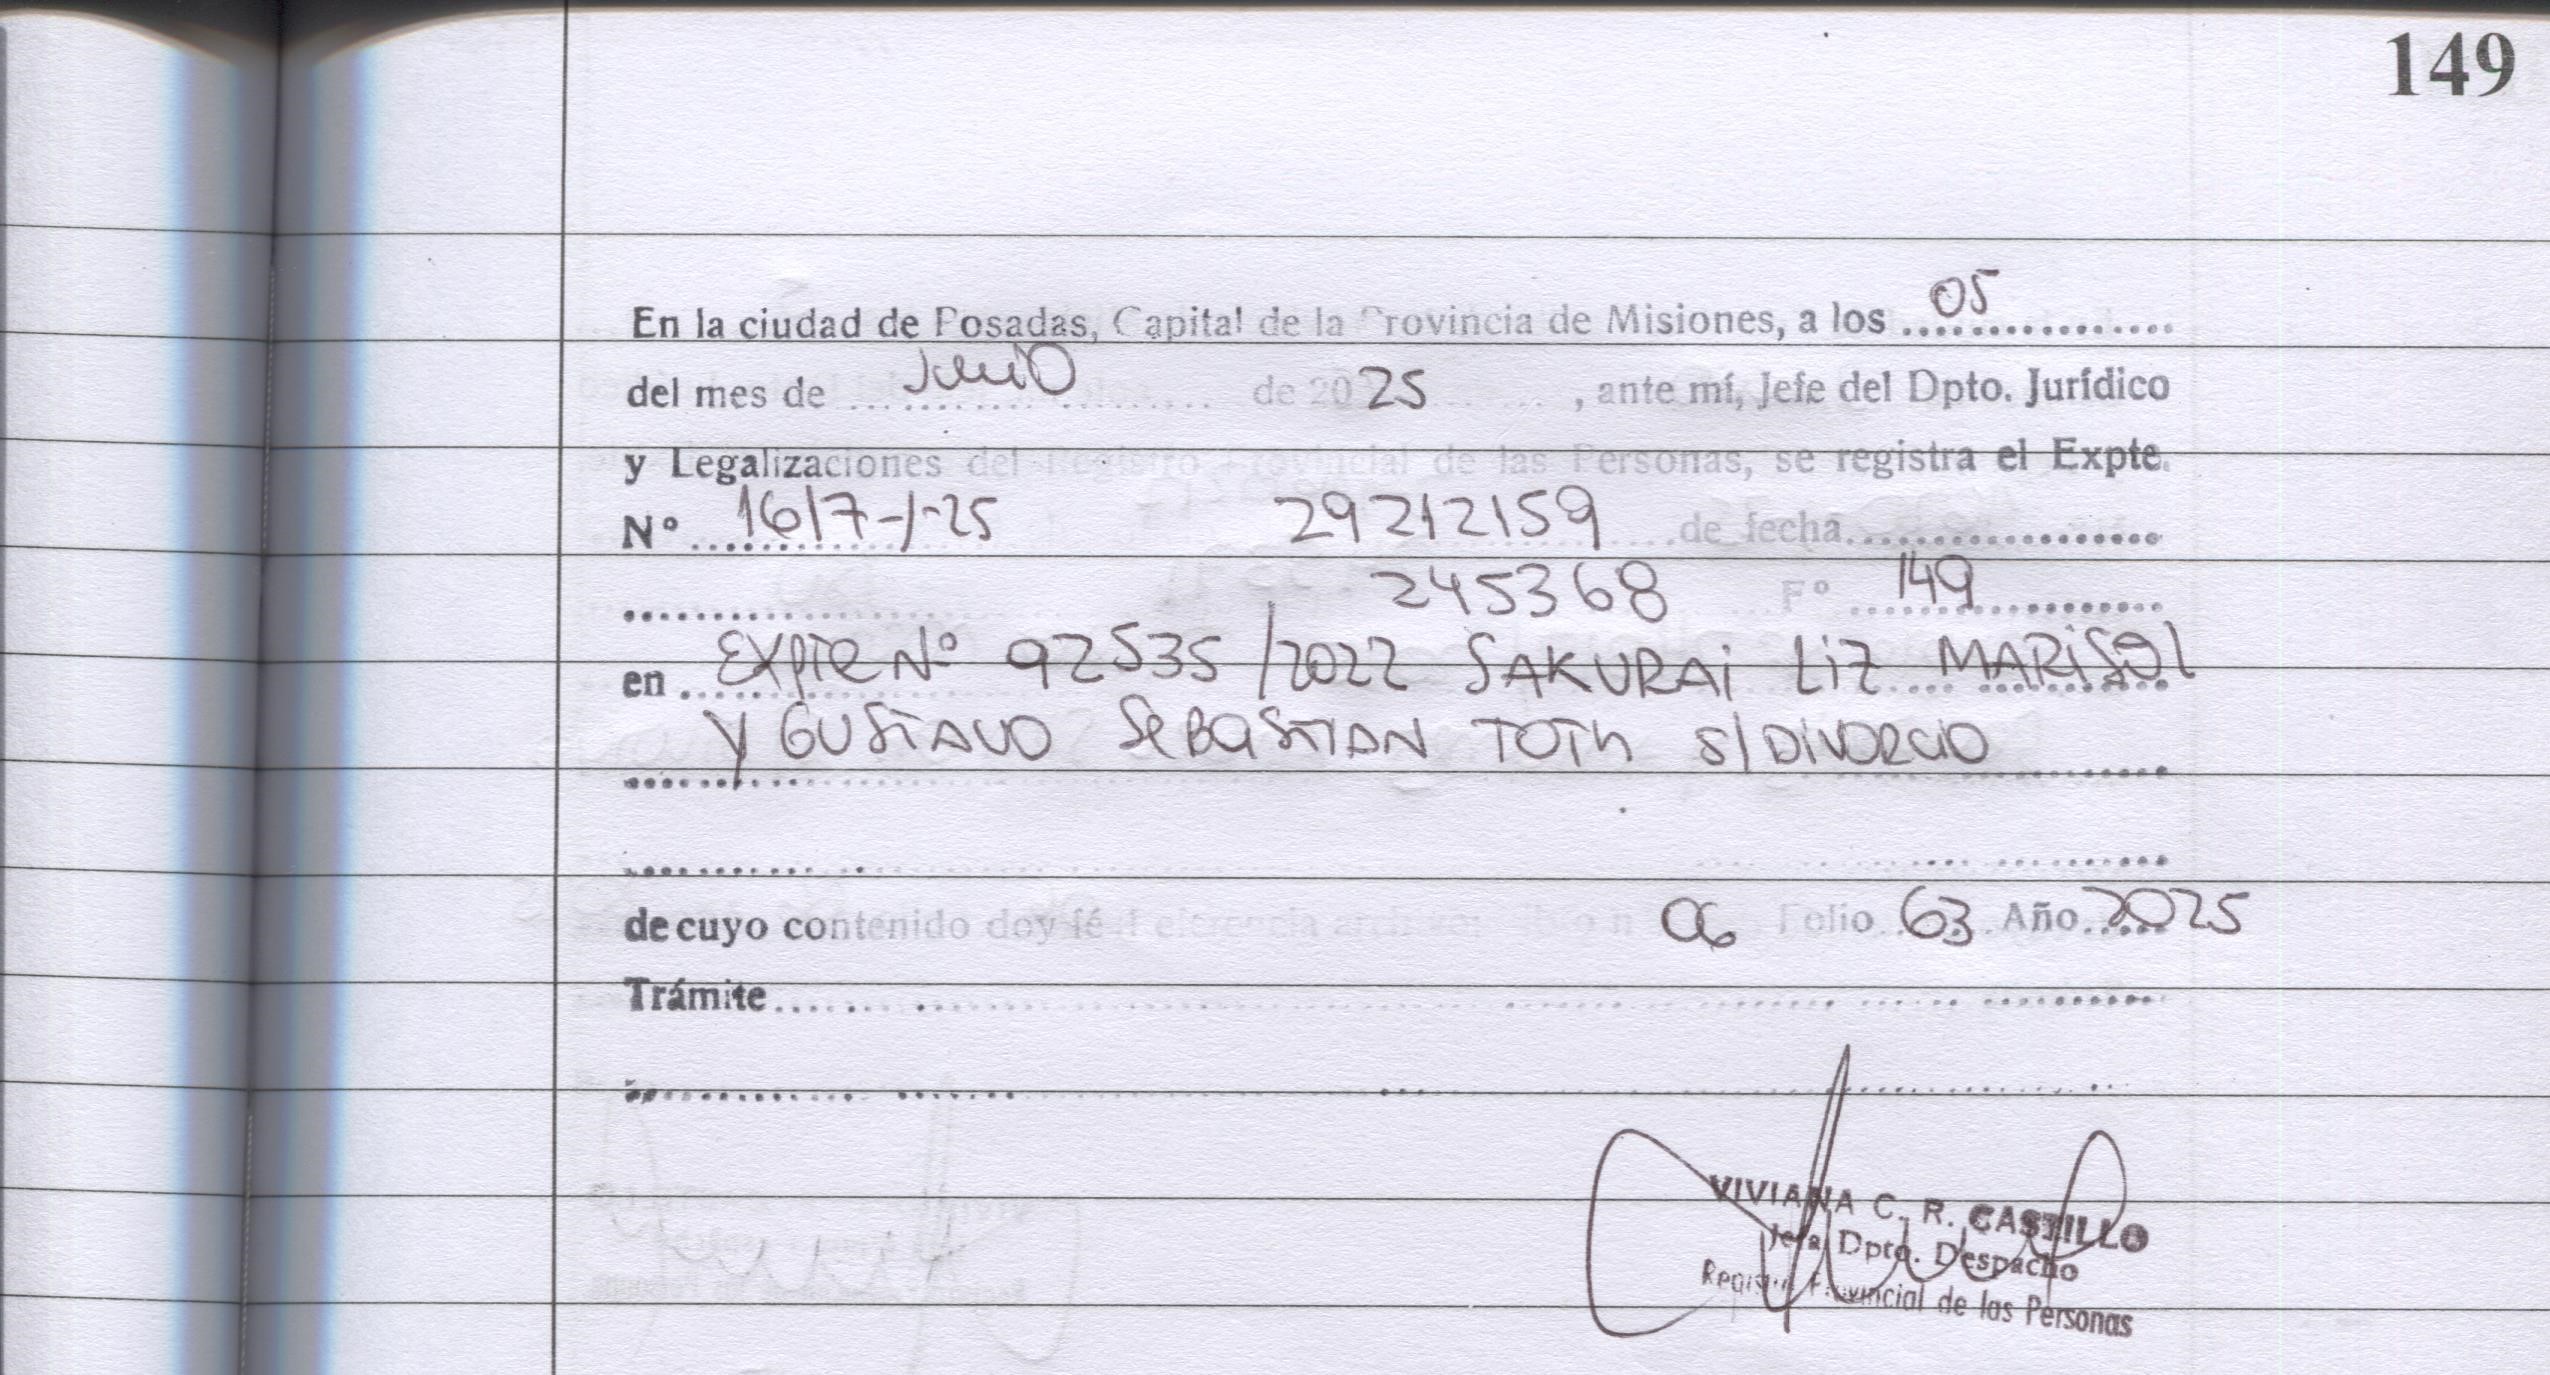 149
En la ciudad de Posadas, Capital de la Provincia de Misiones, a los 05
del mes de Junio de 2025, ante mí, Jefe del Dpto. Jurídico
y Legalizaciones del Registro Provincial de las Personas, se registra el Expte.
Nº 1617-J-25 29212159 de fecha
245368 Fº 149
en Expte Nº 92535/2022 SAKURAI LiZ MARiSol
y GUSTAVO SeBaSTIAN TOTh s/DIVORCIO
de cuyo contenido doy fé 06 Folio 63 Año 2025
Trámite
VIVIANA C. R. CASTILLO
Jefa Dpto. Despacho
Registro Provincial de las Personas